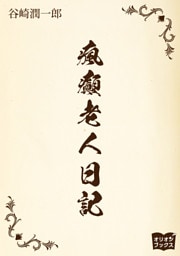 谷崎潤一郎
瘋癲老人日記
オリオン
ブックス